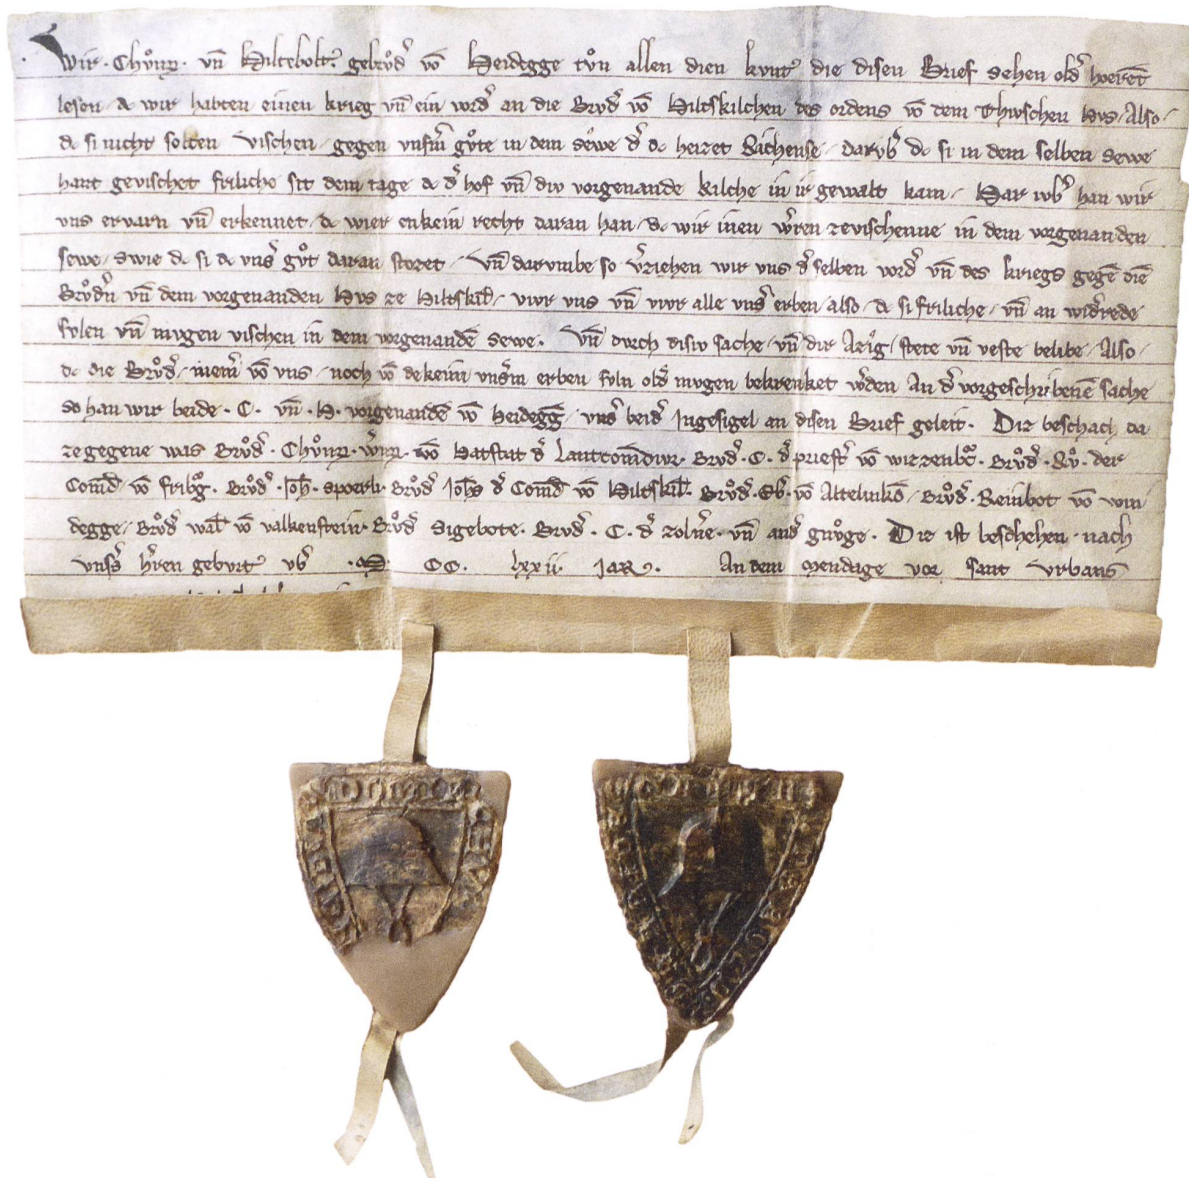 Wir · Chůnr · vn̄ Hiltebolt gebrůdˀ vō Heidegge tůn allen dien kvnt die disen Brief sehen oldˀ hoerēt
lesen / dc wir hatten einen krieg vn̄ ein vordˀ an die Brůdˀ vō Hiltskilchen des ordens vō dem Thvschen Hvs / Also /
dc si nicht solten vischen / gegen vnserm gůte in dem sewe dˀ dc heizet Richense / darvbˀ dc si in dem selben sewe
hant gevischet friliche sit dem tage dc dˀ hof vn̄ div vorgenande kilche in ir gewalt kam / Har vbˀ han wir
vns ervarn vn̄ erkennet / dc wier enkein recht daran han / dc wir inen wˀren zevischenne in dem vorgenanden
sewe / swie dc si dc vnsˀ gůt daran stozet / Vn̄ darvmbe so vˀziehen wir vns dˀ selben vordˀ vn̄ des kriegs gegē diē
Brůdˀn vn̄ dem vorgenanden Hvs ze Hiltskil̄ / vvr vns vn̄ vvr alle vnsˀ erben / also / dc si friliche / vn̄ an widˀrede
svlen vn̄ mvgen vischen in dem vorgenandē sewe · Vn̄ dvrch disiv sache / vn̄ dir / stete vn̄ veste belibe / Also
dc die Brůdˀ / niemˀ vō vns / noch vō dekeim vnsˀm erben svln oldˀ mvgen bekrenket wˀden An dˀ vorgeschribenē sache
So han wir beide · C · vn̄ · H · vorgenandē vō Heidegḡ / vnsˀ beidˀ Ingesigel an disen Brief geleit · Diz beschach da
zegegene was Brůdˀ · Chůnr · wˀnr · vō Hatstat dˀ Lantcom̄dvr · Brvdˀ · C · dˀ priestˀ vō wizenbˀg · Brůdˀ · Rů · der
Com̄d vō fribˀg · Brůdˀ · Joh̄ · spoerli · Brůdˀ Joh̄s dˀ Com̄d vō Hiltskil̄ · Brůdˀ · Eb · vō Altelinkō / Brůdˀ · Reinbot vō vvin /
degge / Brůdˀ wal̄ vō valkenstein · Brůdˀ Sigebote · Brvdˀ · C · dˀ zolnˀe · vn̄ andˀ gnvͦge · Diz ist beschehen · nach
vnsˀs hˀren gebvrt vbˀ · M · CC · lxxii · Jar · An dem Mendage vor sant vrbans